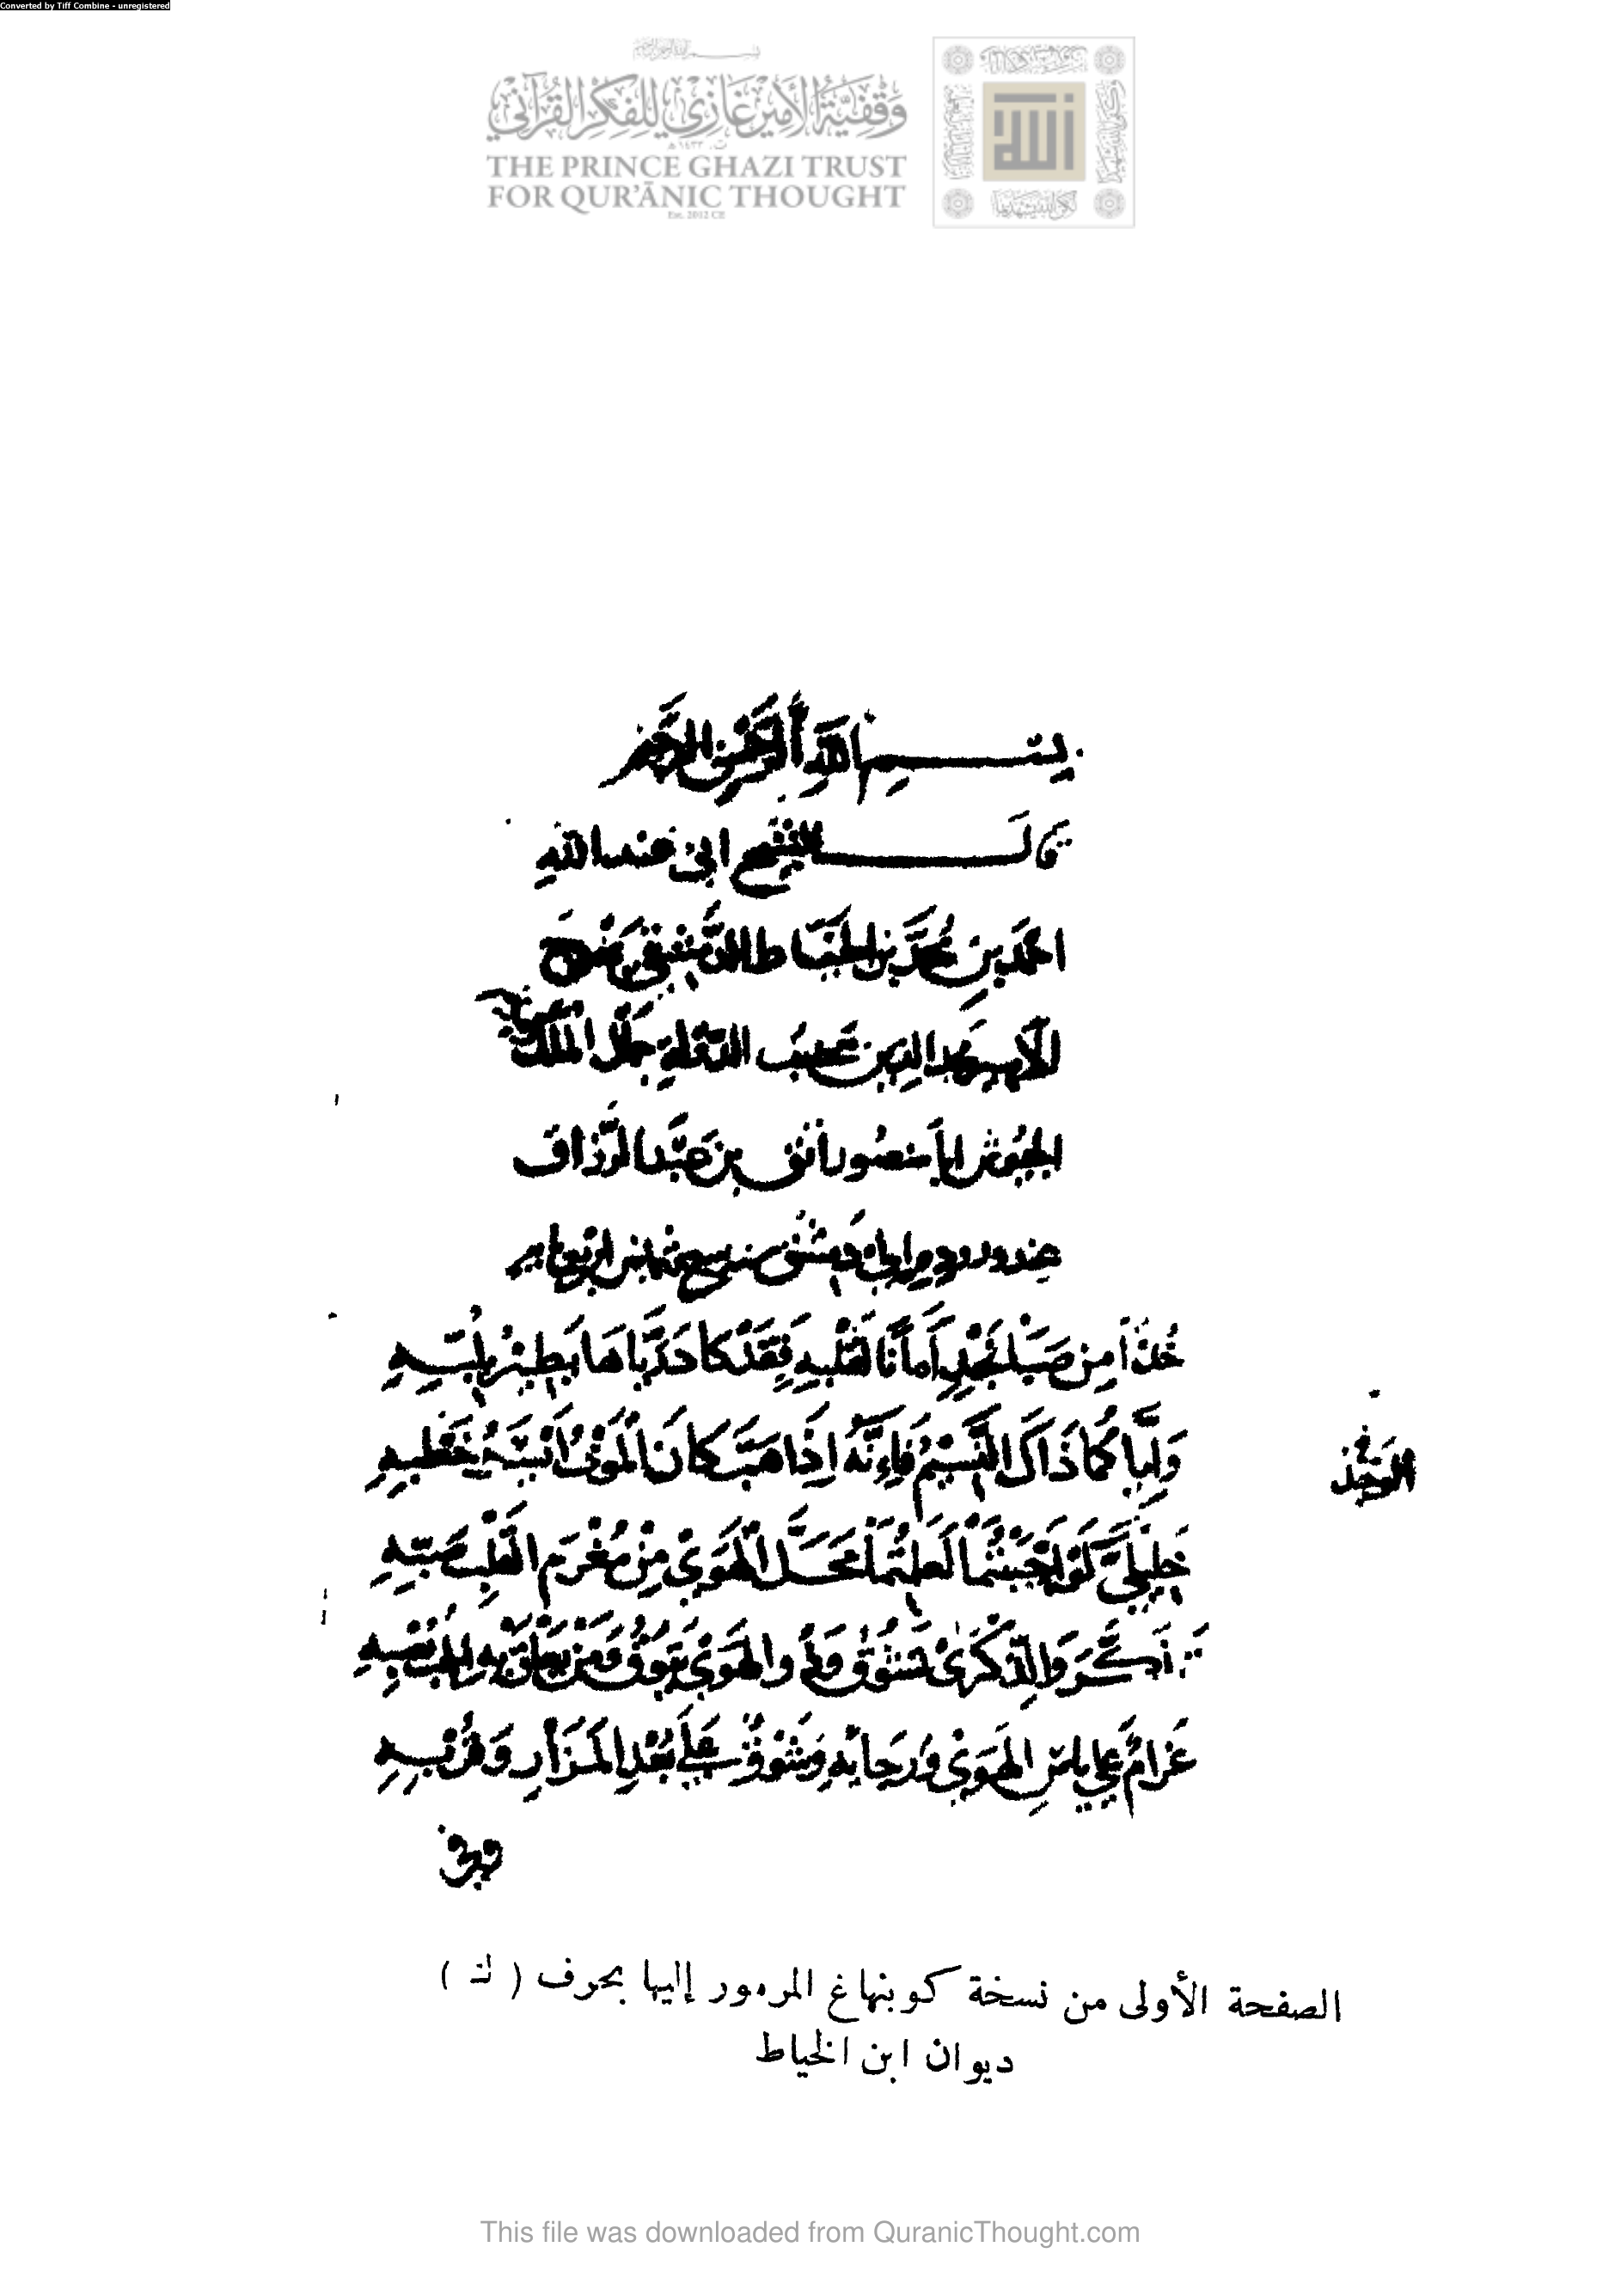 Converted by Tiff Combine - unregistered
وقفية الأمير غازي للفكر القرآني
THE PRINCE GHAZI TRUST
FOR QUR'ĀNIC THOUGHT
Est. 2012 CE
بسم الله الرحمن الرحيم
قال الشيخ ابي عبد الله
احمد بن محمد بن الخياط الدمشقي يمدح
الأمير عضب الدولة
الجيوش ابا منصور انق بن عبد الرزاق
دمشق سنة
خُذَا مِن صَبَا نَجْدٍ أَمَانًا لِقَلْبِهِ فَقَدْ كَادَ رَيَّاهَا يَطِيرُ بِلُبِّهِ
وَإِيَّاكُمَا ذَاكَ النَّسِيمُ فَإِنَّهُ إِذَا هَبَّ كَانَ الْمَوْتُ أَيْسَرَ خَطْبِهِ
الوجد
خَلِيلَيَّ لَوْ أَحْبَبْتُمَا لَعَلِمْتُمَا مَحَلَّ الْهَوَى مِنْ مُغْرَمِ الْقَلْبِ صَبِّهِ
تَذَكَّرَ وَالذِّكْرَى تَشُوقُ وَذُو الْهَوَى يَتُوقُ وَمَنْ يَعْلَقْ بِهِ الْحُبُّ يُصْبِهِ
غَرَامٌ عَلَى يَأْسِ الْهَوَى وَرَجَائِهِ وَشَوْقٌ عَلَى بُعْدِ الْمَزَارِ وَقُرْبِهِ
وفي
الصفحة الأولى من نسخة كوبنهاغ المرموز إليها بحرف ( ك )
ديوان ابن الخياط
This file was downloaded from QuranicThought.com